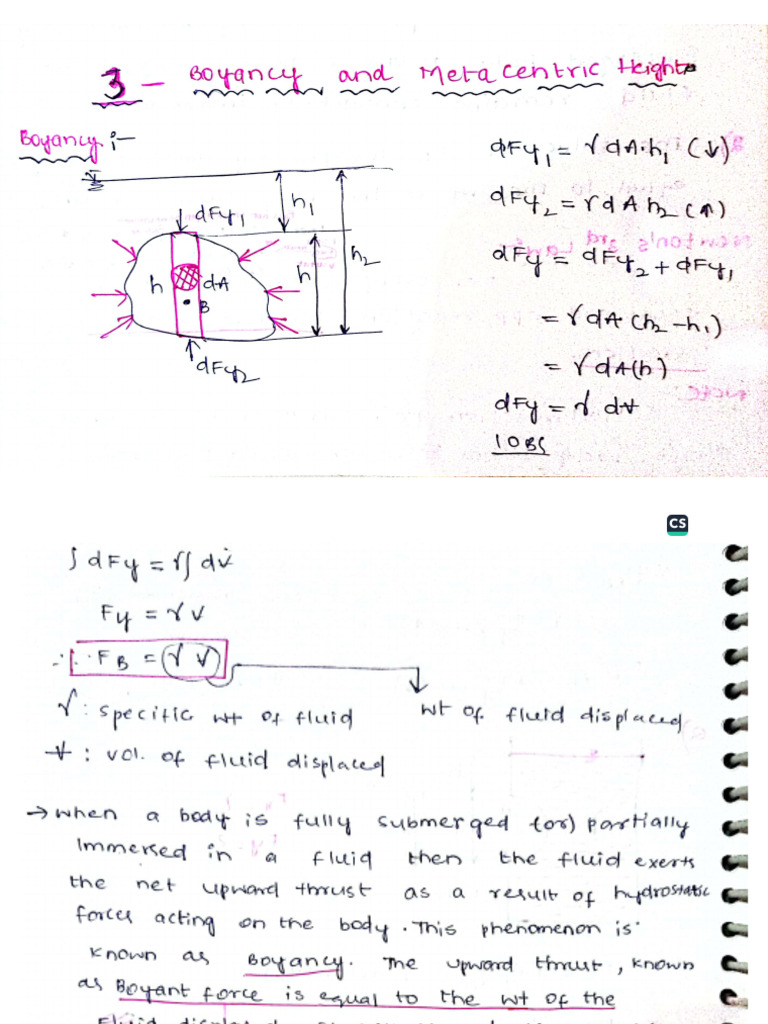 3 - Boyancy and Metacentric Height
Boyancy :-
dFy1 = γ dA·h1 (↓)
dFy2 = γ dA h2 (↑)
dFy = dFy2 + dFy1
= γ dA (h2 - h1)
= γ dA(h)
dFy = γ dV
10BS
dFy1
h1
h2
h
h
dA
B
dFy2
CS
∫ dFy = γ∫ dV
Fy = γ V
∴ FB = γ V
γ : specific wt of fluid
wt of fluid displaced
V : vol. of fluid displaced
→ When a body is fully submerged (or) partially
Immersed in a fluid then the fluid exerts
the net upward thrust as a result of hydrostatic
forces acting on the body. This phenomenon is
known as Boyancy. The upward thrust, known
as Boyant force is equal to the wt of the